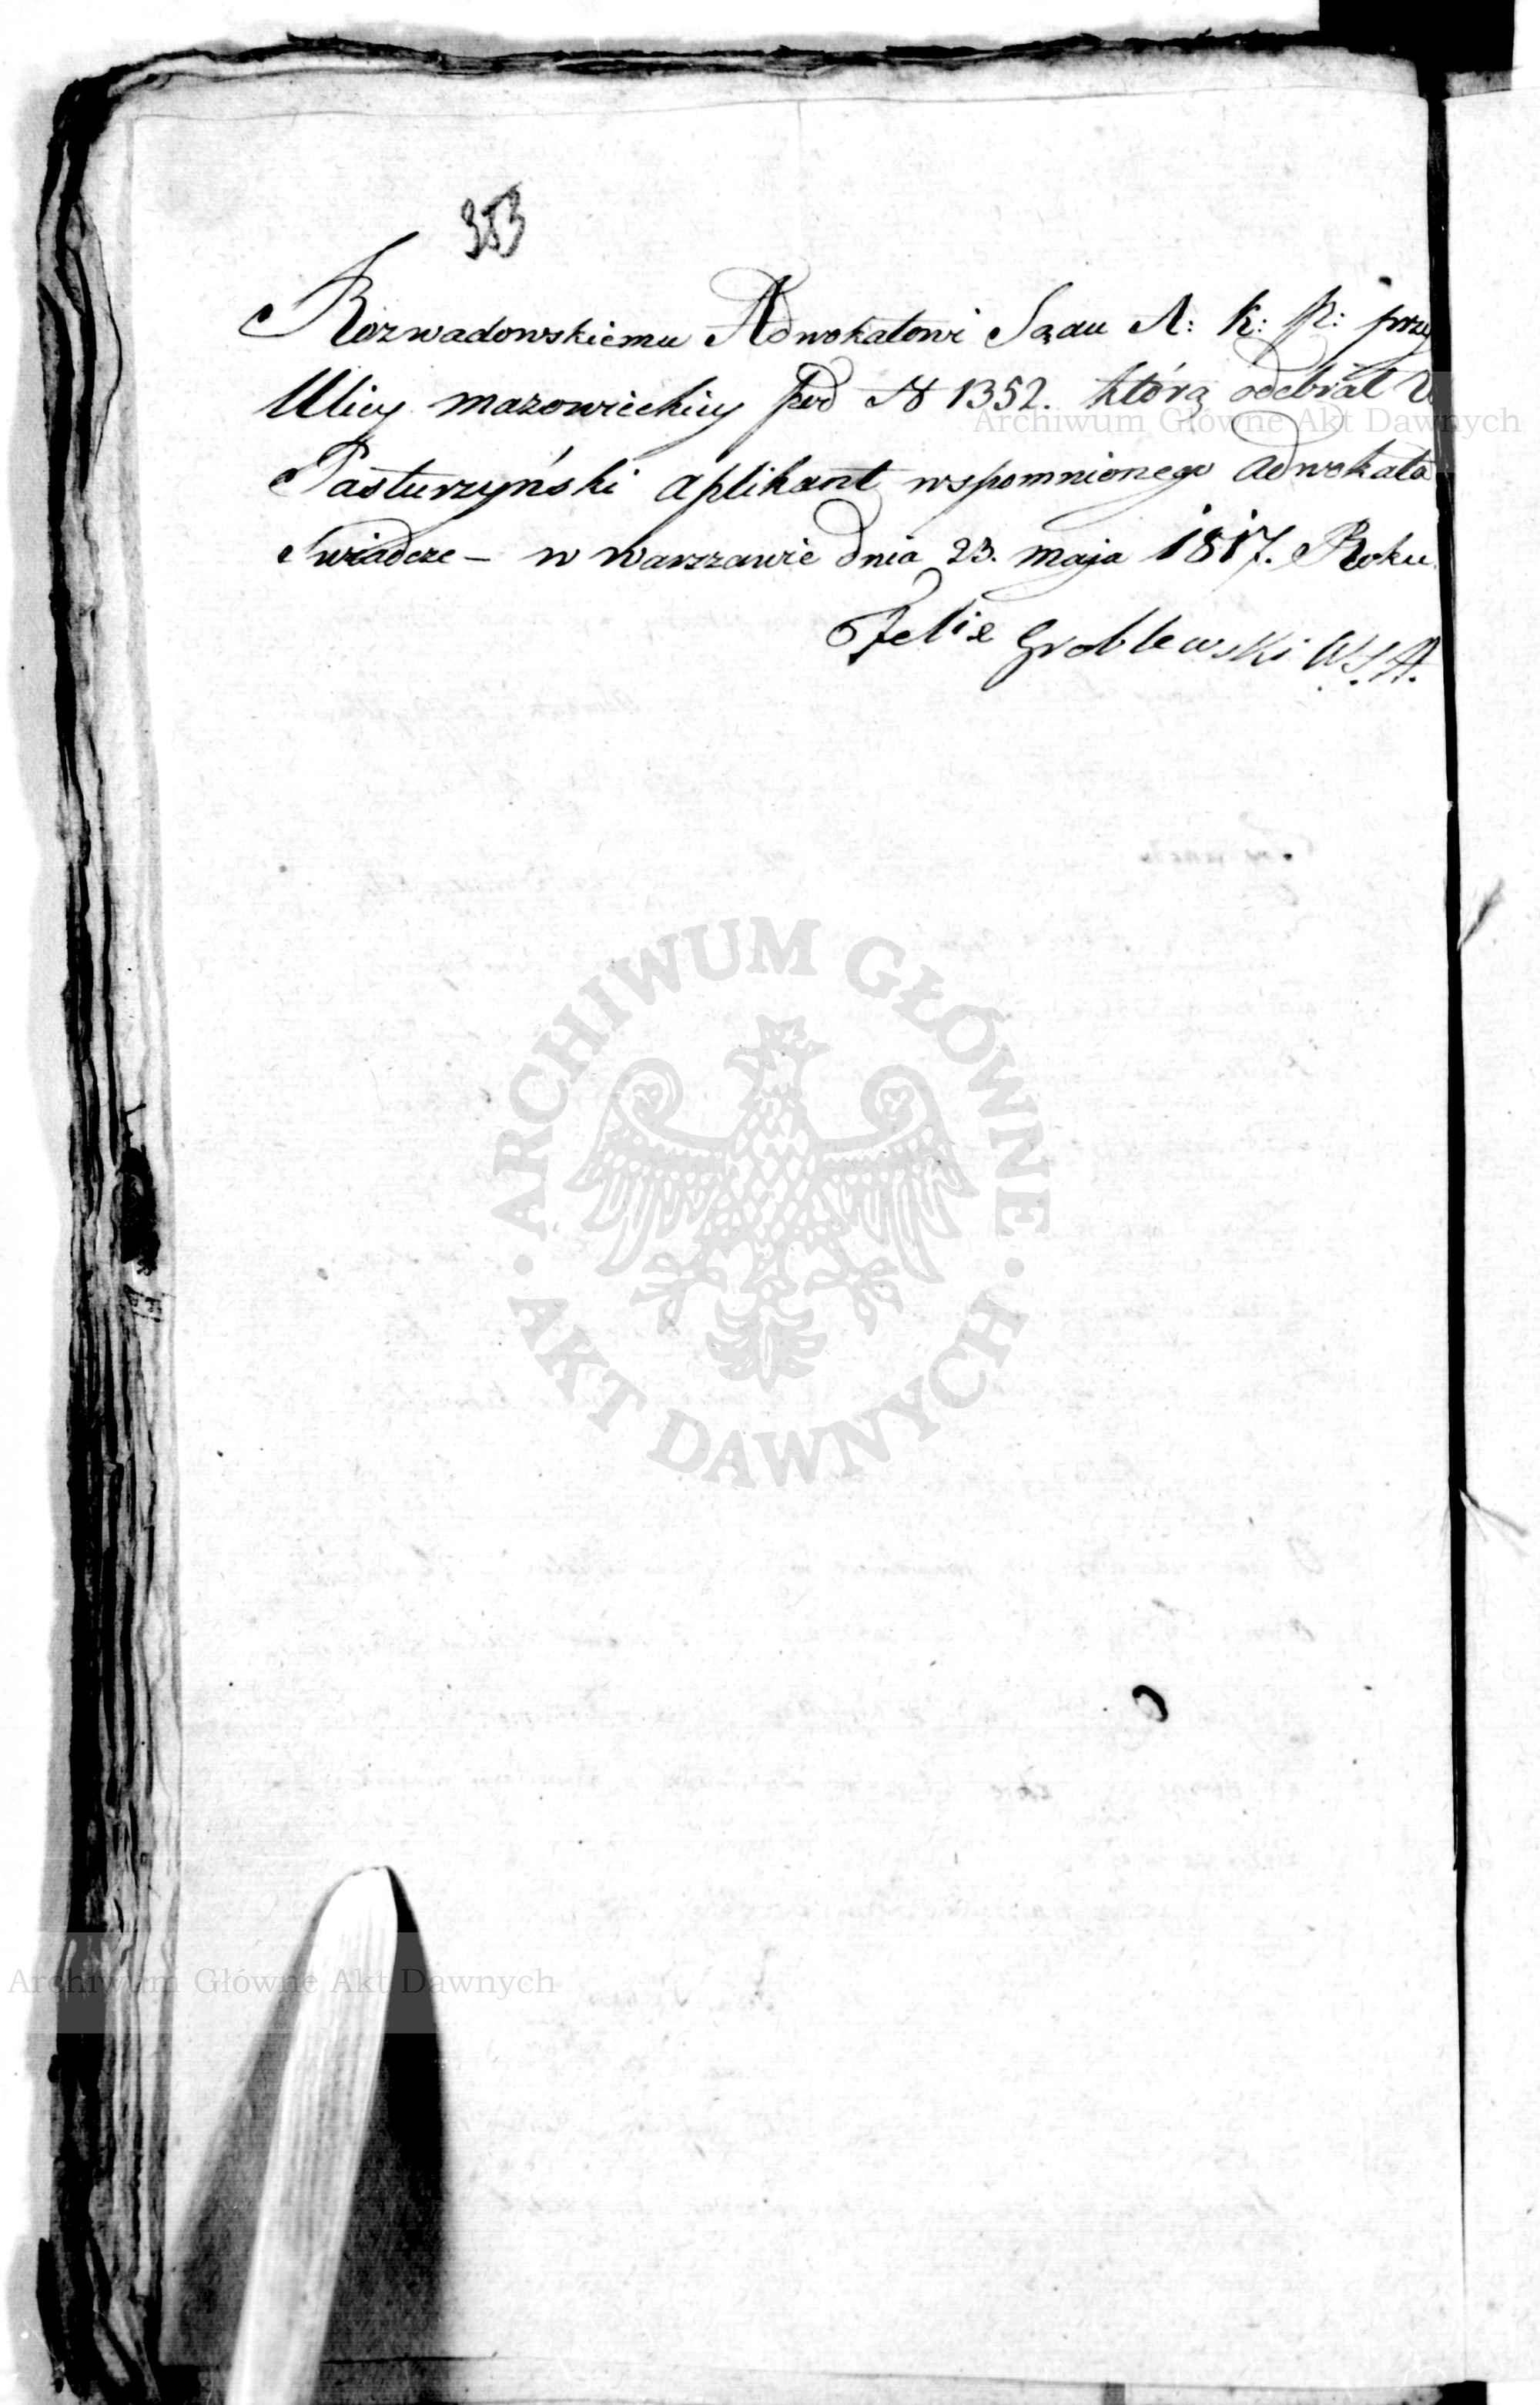 383
Rozwadowskiemu Adwokatowi Sądu A: K: P: przy
Ulicy mazowieckiey Pod N 1352. którą odebrał
Pasturzyński aplikant wspomnionego adwokata
Swiadcze – w Warszawie dnia 23. maja 1817. Roku
Felix Groblewski W.S.A.
Archiwum Główne Akt Dawnych
ARCHIWUM GŁÓWNE AKT DAWNYCH
Archiwum Główne Akt Dawnych